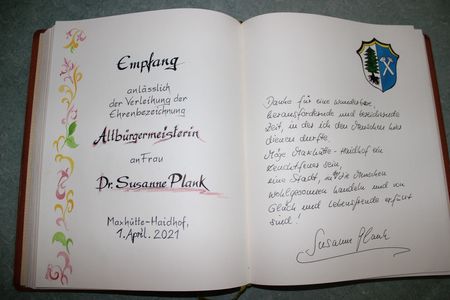 Empfang
anlässlich
der Verleihung der
Ehrenbezeichnung
Altbürgermeisterin
an Frau
Dr. Susanne Plank
Maxhütte-Haidhof,
1. April. 2021
Danke für eine wunderbare,
herausfordernde und bereichernde
Zeit, in der ich den Menschen hier
dienen durfte.
Möge Maxhütte-Haidhof ein
Leuchtfeuer sein,
eine Stadt, Menschen
Wohlgesonnen handeln und von
Glück und Lebensfreude erfüllt
sind!
Susanne Plank